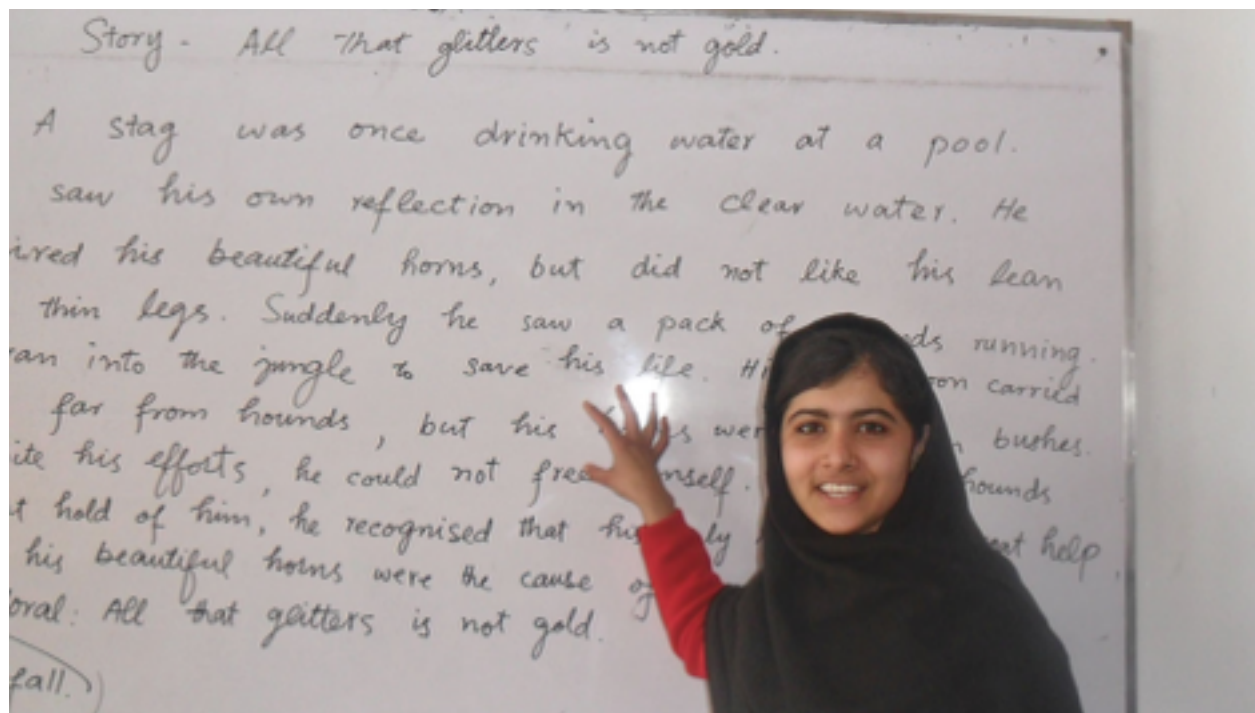 Story - All that glitters is not gold.
A stag was once drinking water at a pool.
saw his own reflection in the clear water. He
ired his beautiful horns, but did not like his lean
thin legs. Suddenly he saw a pack of ds running.
ran into the jungle to save his life. on carried
far from hounds, but his wer bushes.
ite his efforts, he could not free mself. hounds
t hold of him, he recognised that his ly eat help
his beautiful horns were the cause of
oral: All that glitters is not gold.
fall.)